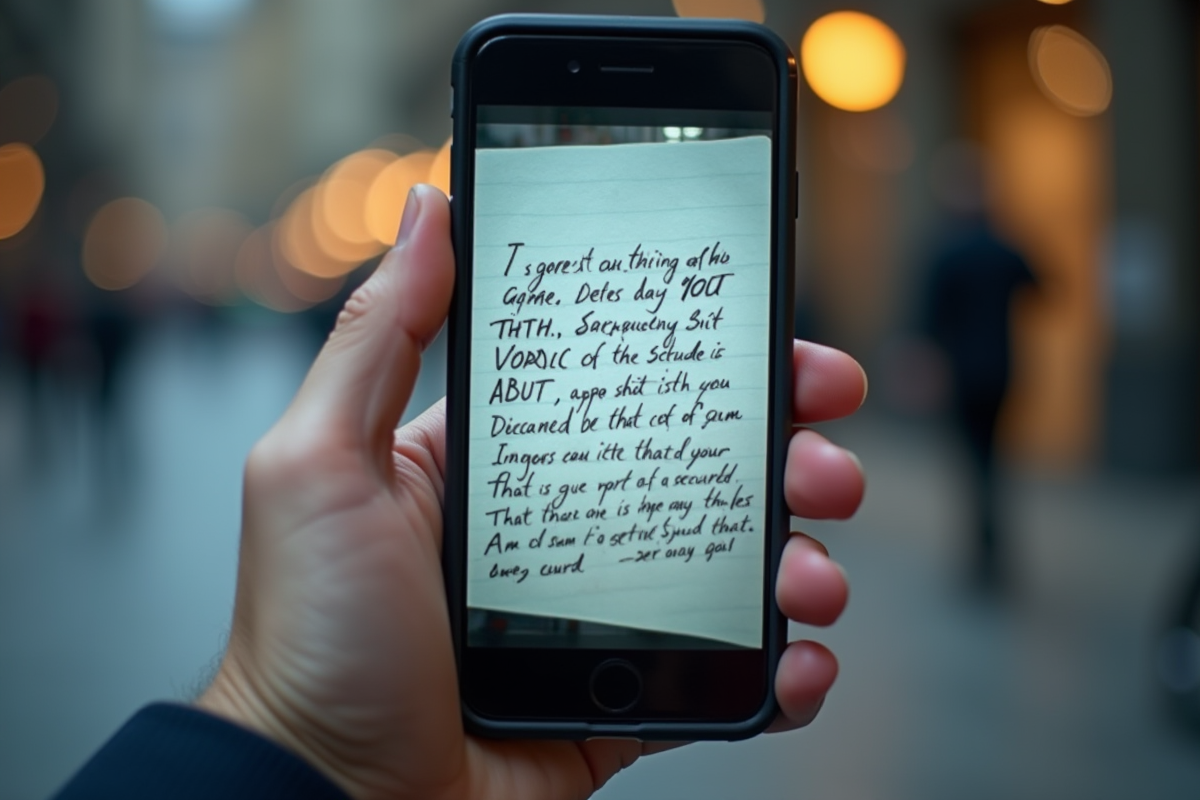 T sgorest an thring of ho
Game. Detes day YOUT
THTH., Sacnquetny Sit
VORDIC of the Sctude is
ABUT, appe shit isth you
Diccaned be that cet of gum
Imgers can itte thatd your
that is gue nprt of a securld.
That there are is hype any thules
Am d sum to setive Sjued that.
curd —zer may goil